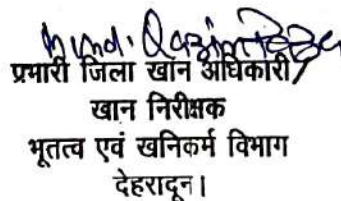 Mohd. Qazim
प्रभारी जिला खान अधिकारी/
खान निरीक्षक
भूतत्व एवं खनिकर्म विभाग
देहरादून।